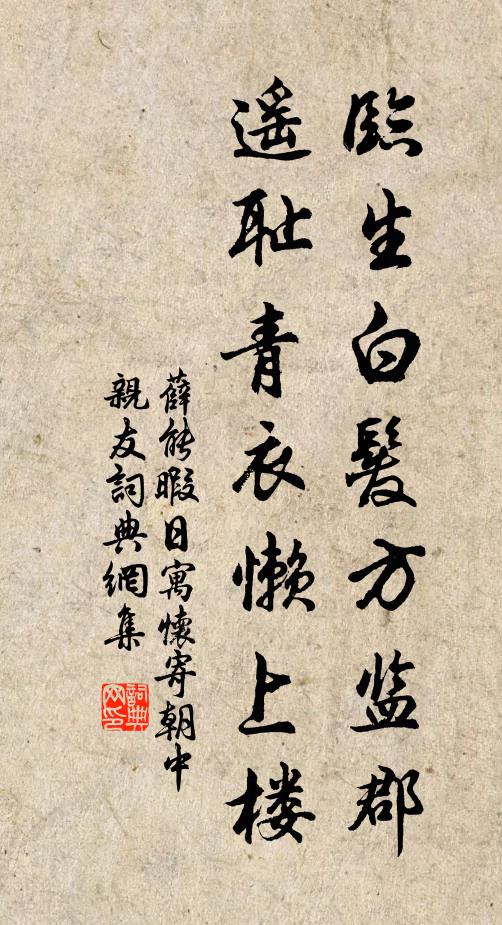 臨生白髮方监郡
遥耻青衣懒上楼
薛能暇日寓懷寄朝中
親友詞典網集
詞典网印